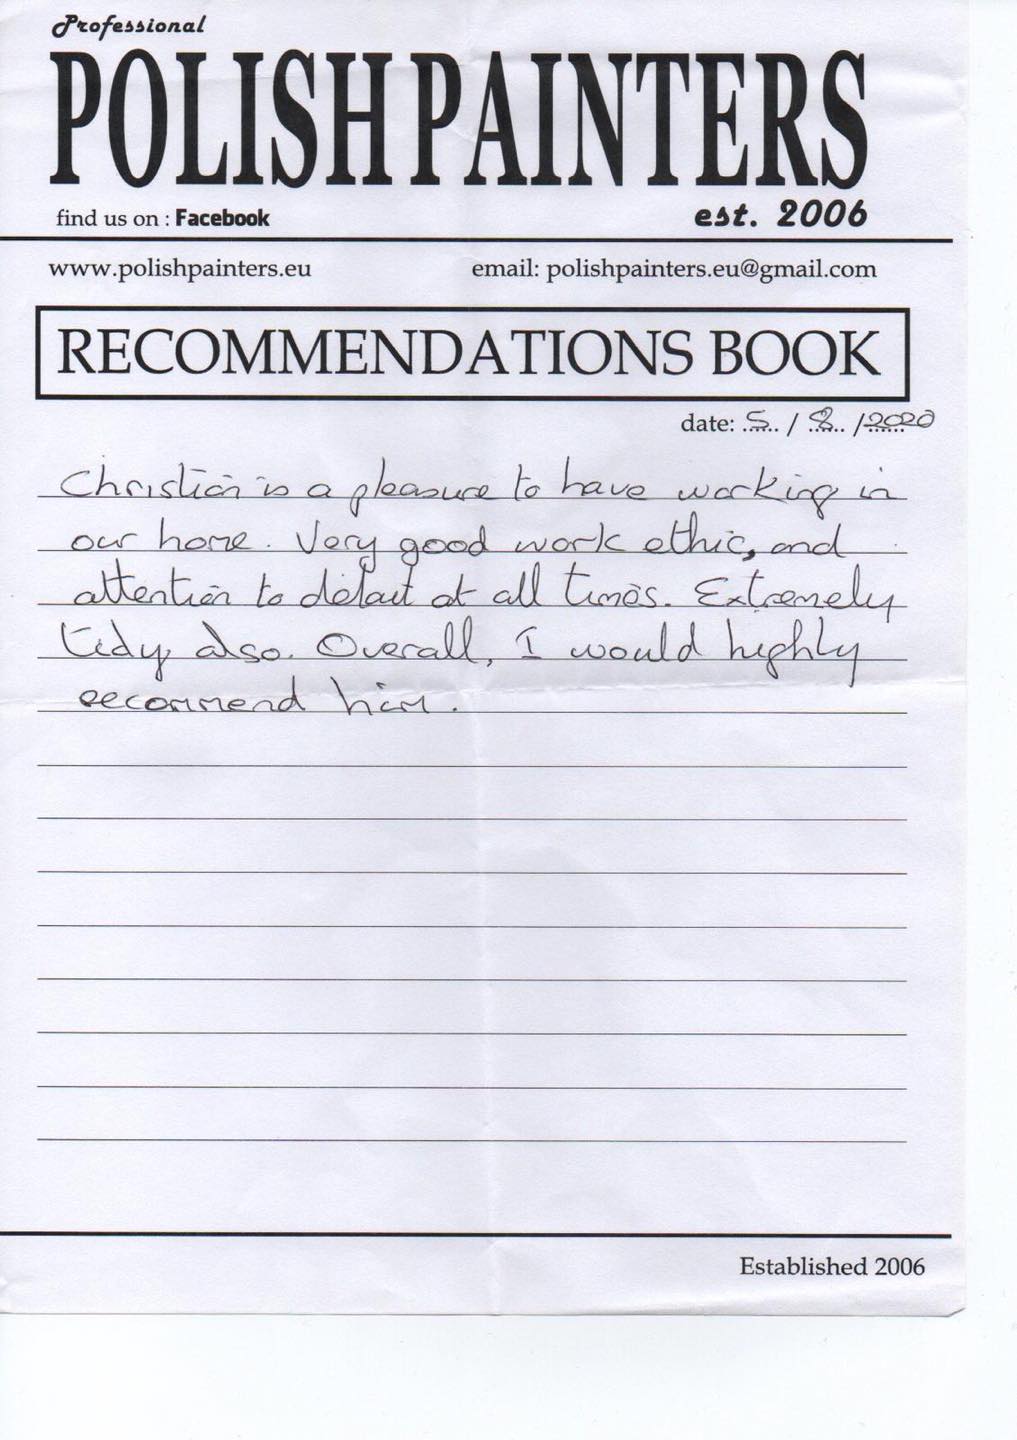 Professional
POLISH PAINTERS
find us on : Facebook
est. 2006
www.polishpainters.eu
email: polishpainters.eu@gmail.com
RECOMMENDATIONS BOOK
date: 5 / 8 / 2020
Christian is a pleasure to have working in
our home. Very good work ethic, and
attention to detail at all times. Extremely
tidy also. Overall, I would highly
recommend him.
Established 2006